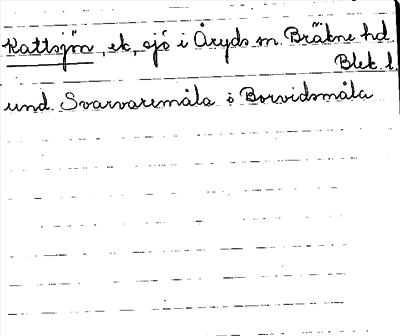 Kattsjön, ek, sjö i Åryds sn. Bräkne hd.
Blek. l.
und. Svarvaremåla o Borvidsmåla